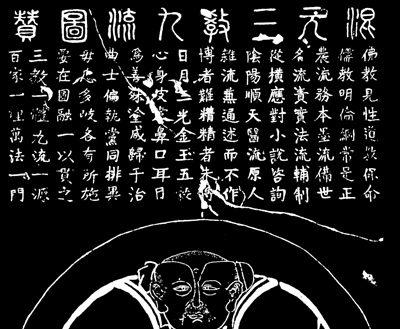 混元三教九流圖贊
佛教見性道教保命
儒教明倫綱常是正
農流務本墨流備世
名流責實法流輔制
從橫應對小說咨詢
陰陽順天醫流原人
雜流兼通述而不作
博者難精精者未博
日月三光金玉五穀
心身皮膚鼻口耳目
為善殊途咸歸于治
曲士偏執黨同排異
毋患多岐各有所施
要在圓融一以貫之
三教一體九流一源
百家一理萬法一門